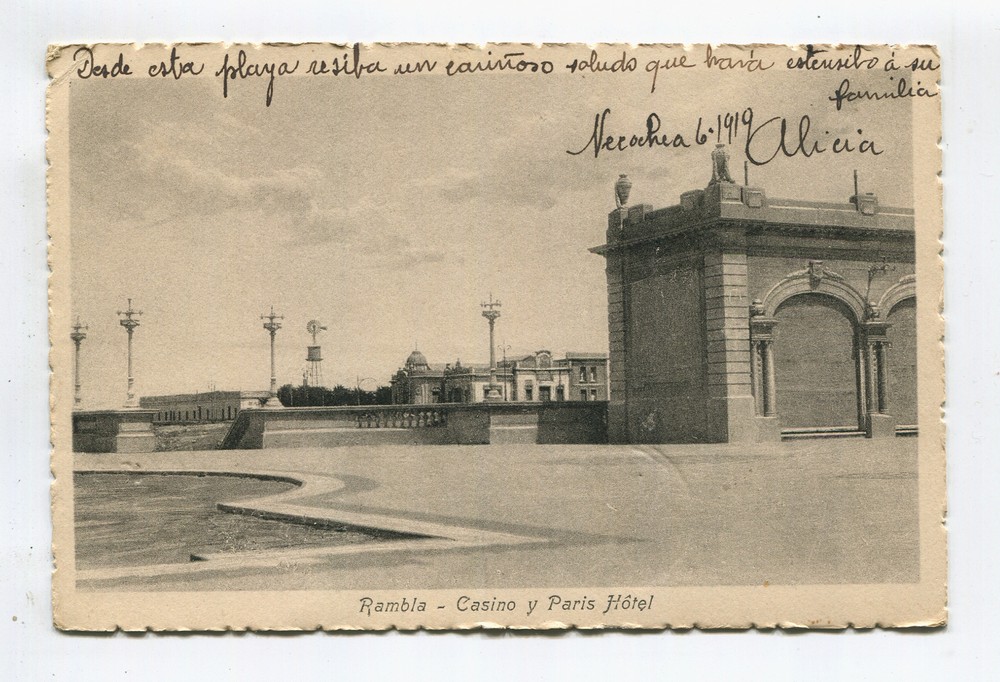 Desde esta playa resiba un cariñoso saludo que hará estensibo á su
familia
Necochea 6·1919 Alicia
Rambla - Casino y Paris Hôtel